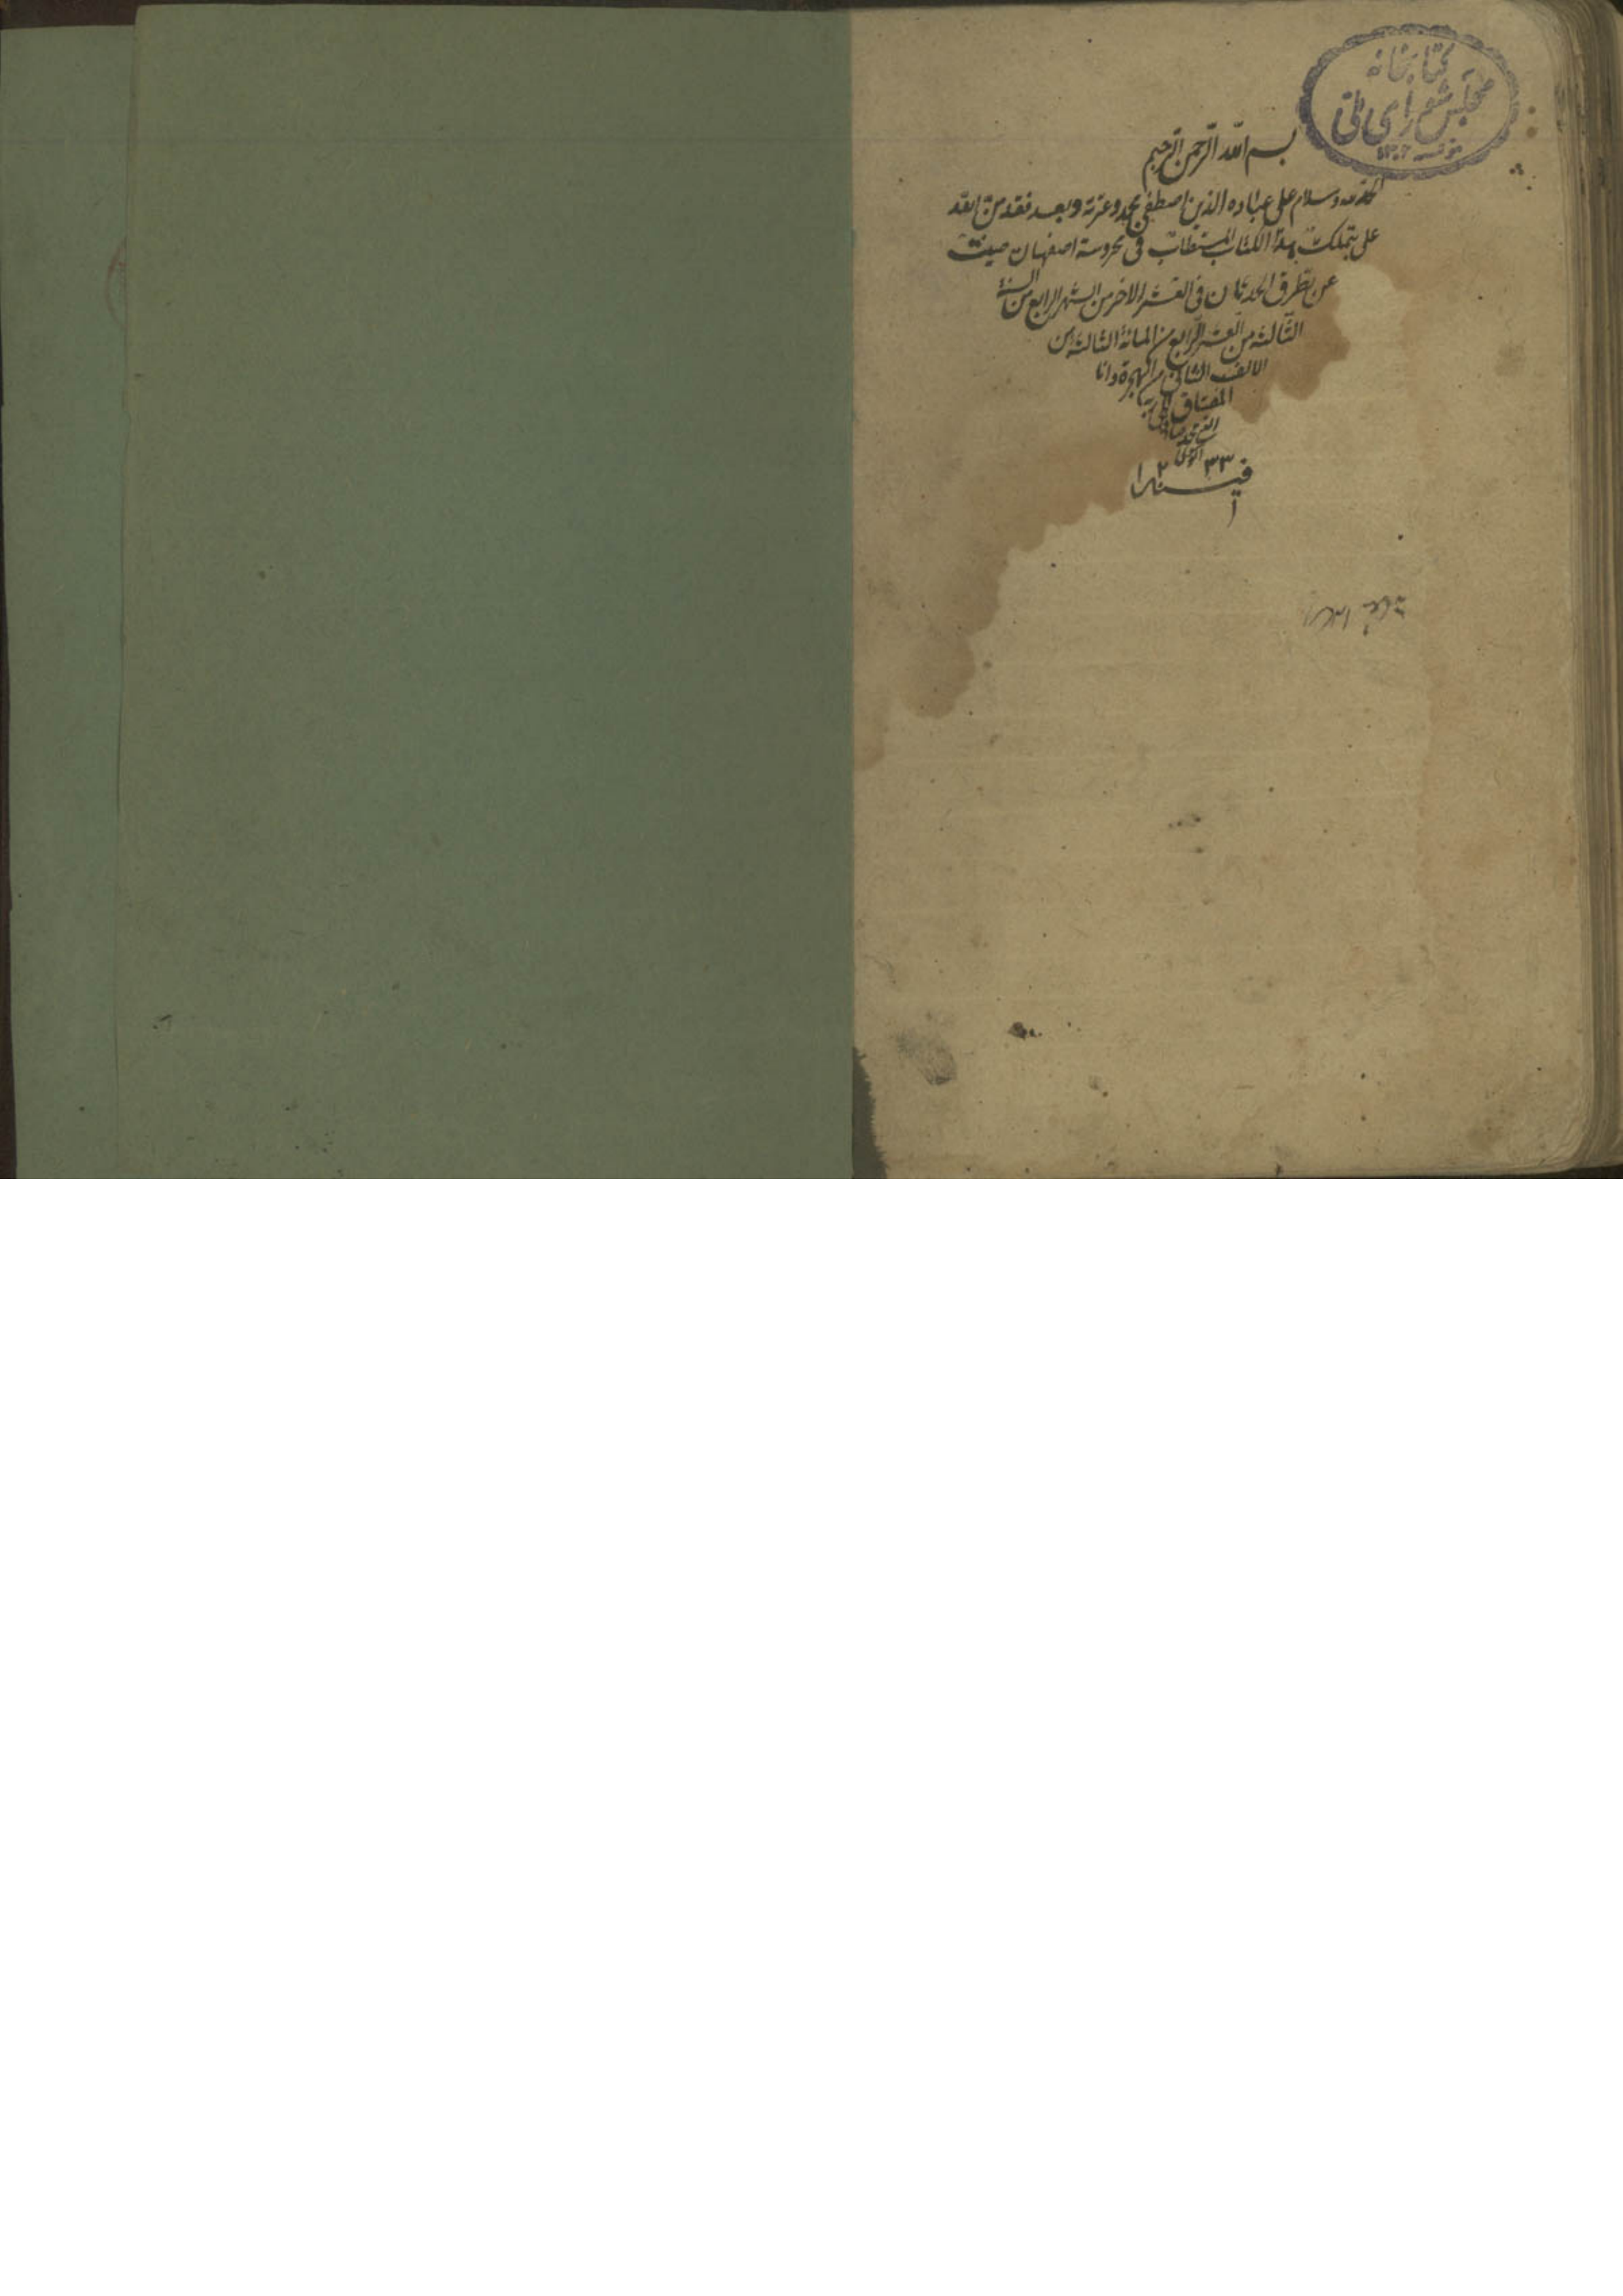 کتابخانه
مجلس شورای ملی
بسم الله الرحمن الرحیم
الحمد لله وسلام علی عباده الذین اصطفی محمد وعترته وبعد فقد من الله
علی بتملک هذا الکتاب المستطاب فی محروسة اصفهان صینت
عن تطرق الحدثان فی العشر الاخر من الشهر الرابع من السنة
الثالثة من العشر الرابع من المائة الثالثة من
الالف الثانی من الهجرة وانا
المفتاق الی ربه
محمد
فی سنة ۱۲۳۳